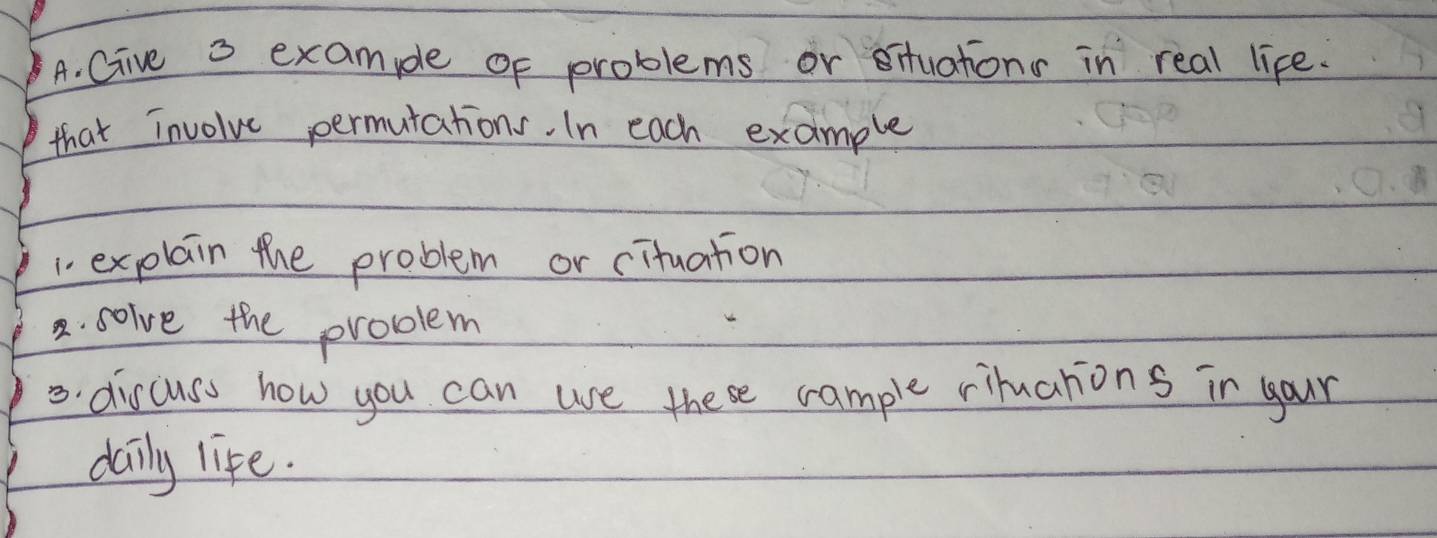 A. Give 3 example of problems or situations in real life.
that involve permutations. In each example
1. explain the problem or situation
2. solve the problem
3. discuss how you can use these sample situations in your
daily life.